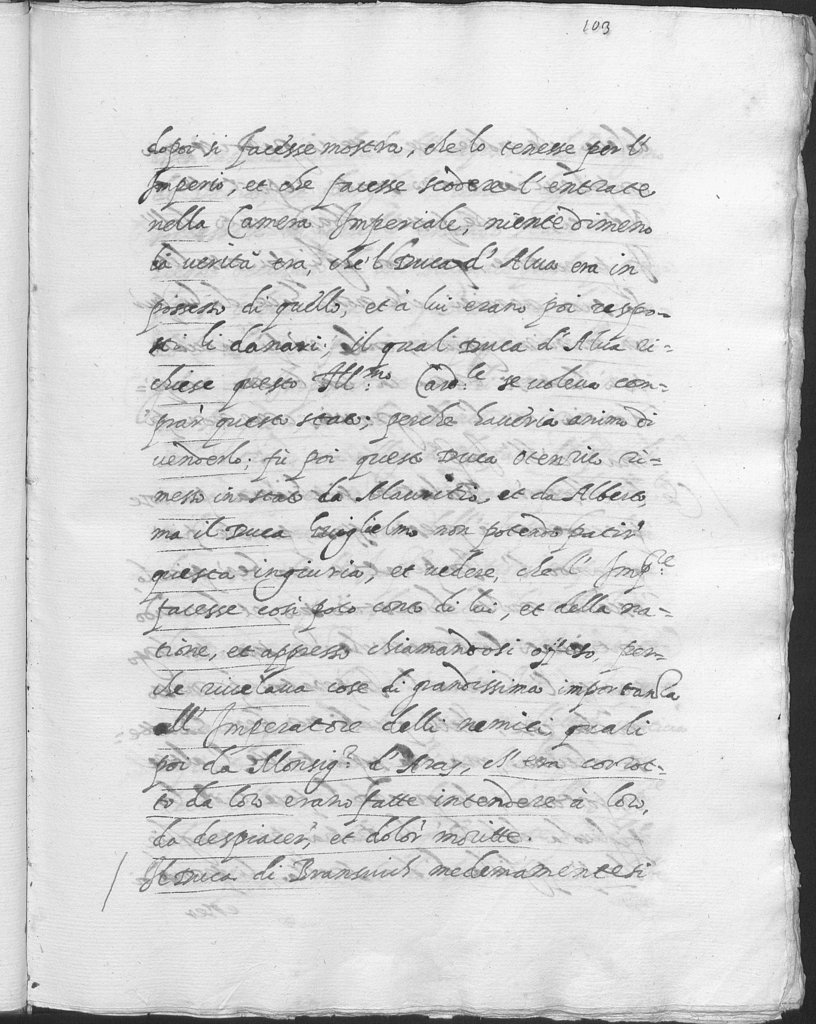 103
dopoi si facesse mostra, che lo tenesse per l'
Imperio, et che facesse scodere l'entrate
nella Camera Imperiale, niente dimeno
la verità era, che'l Duca d'Alva era in
possesso di quello, et à lui erano poi respo-
sti li danari; il qual Duca d'Alva ri=
chiese questo Ill.mo Card.le se voleva com=
prar questo stato; perche haveria animo di
venderlo; fù poi questo Duca Ottenrico ri=
messo in stato da Mauritio, et da Alberto,
ma il Duca Guiglielmo non potendo patir
questa ingiuria, et vedere, che l' Imp.re
facesse così poco conto di lui, et della na-
tione, et appresso chiamandosi offeso, per-
che rivelava cose di grandissima importanza
all' Imperatore delli nemici, quali
poi da Monsig.r d'Aras, ch'era corrot-
to da loro erano fatte intendere à loro,
da despiacer, et dolor moritte.
Il Duca di Bransvich medemamente si